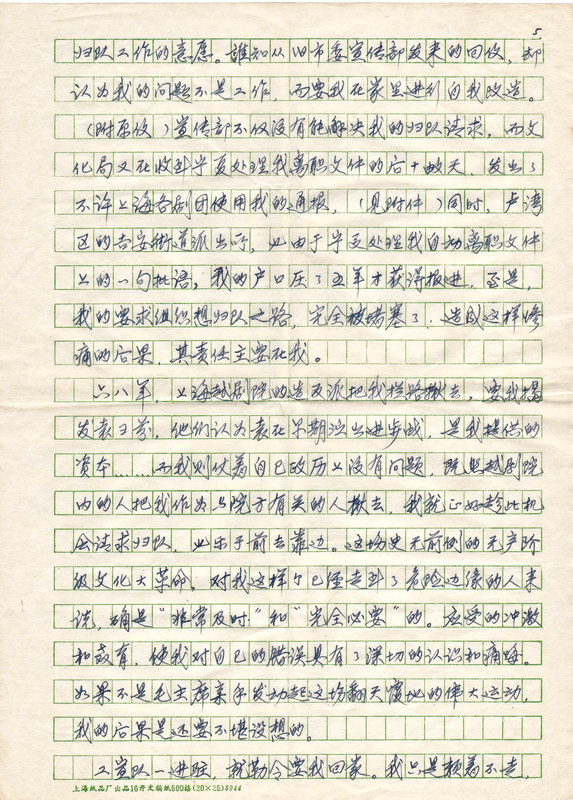 5
归队工作的意愿。谁知从旧市委宣传部发来的回伩，却
认为我的问题不是工作，而要我在家里进行自我改造。
（附原伩）宣传部不仅没有能解决我的归队请求，而文
化局又在收到学夏处理我离职文件的后十数天，发出了
不许上海各剧团使用我的通报，（见附件）同时，卢湾
区的吉安街道派出所，必由于学夏处理我自动离职文件
上的一句批语，我的户口压了五年才获得报进，至是，
我的要求组织想归队之路，完全被堵塞了，造成这样惨
痛的后果，其责任主要在我。
六八年，上海越剧院的造反派把我拦路揪去，要我揭
发袁雪芬，他们认为袁在早期演出进步戏，是我提供的
资本……而我则仗着自己政历上没有问题，既然越剧院
内的人把我作为与院方有关的人揪去，我就正好趁此机
会请求归队，必乐于前去靠边。这场史无前例的无产阶
级文化大革命，对我这样个已经走到了危险边缘的人来
说，确是“非常及时”和“完全必要”的。应受的冲激
和教育，使我对自己的错误具有了深切的认识和痛悔。
如果不是毛主席亲手发动起这场翻天覆地的伟大运动，
我的后果是还要不堪设想的。
工宣队一进驻，就勒令要我回家。我只是赖着不走，
上海纸品厂出品16开文稿纸500格(20×25)8944